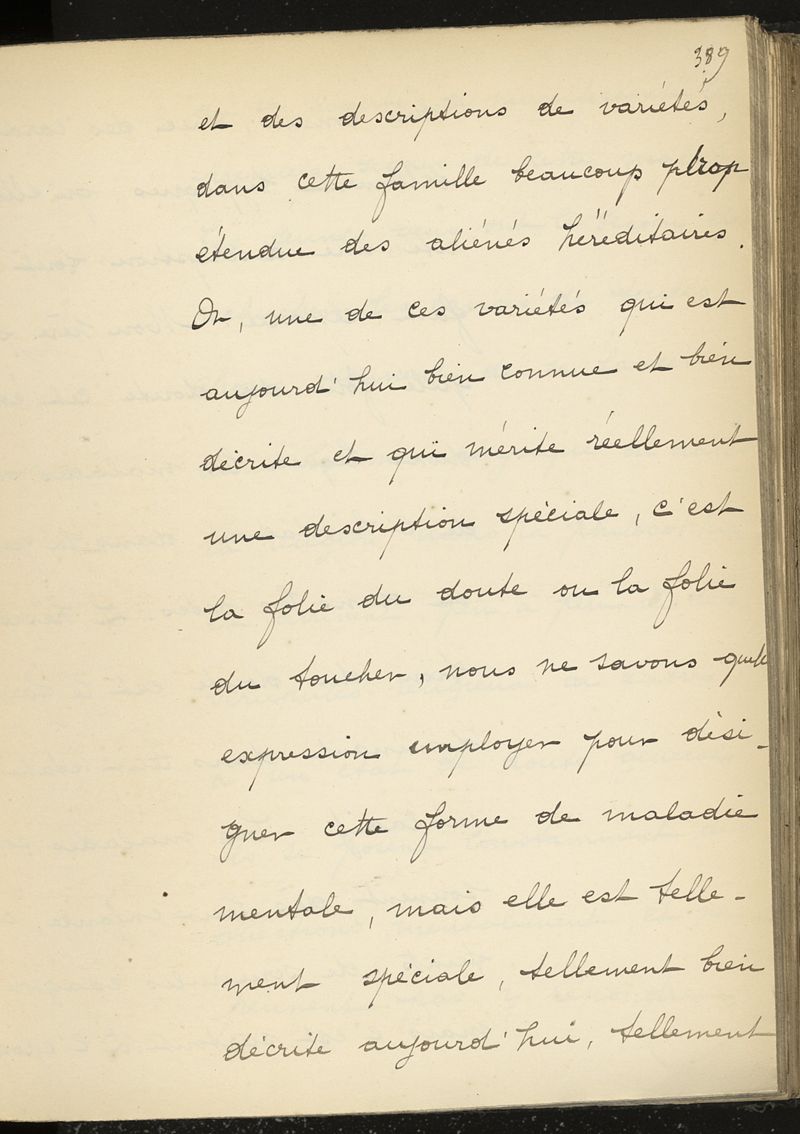 389
et des descriptions de variétés,
dans cette famille beaucoup trop
étendue des aliénés héréditaires.
Or, une de ces variétés qui est
aujourd'hui bien connue et bien
décrite et qui mérite réellement
une description spéciale, c'est
la folie du doute ou la folie
du toucher, nous ne savons quelle
expression employer pour dési-
gner cette forme de maladie
mentale, mais elle est telle-
ment spéciale, tellement bien
décrite aujourd'hui, tellement